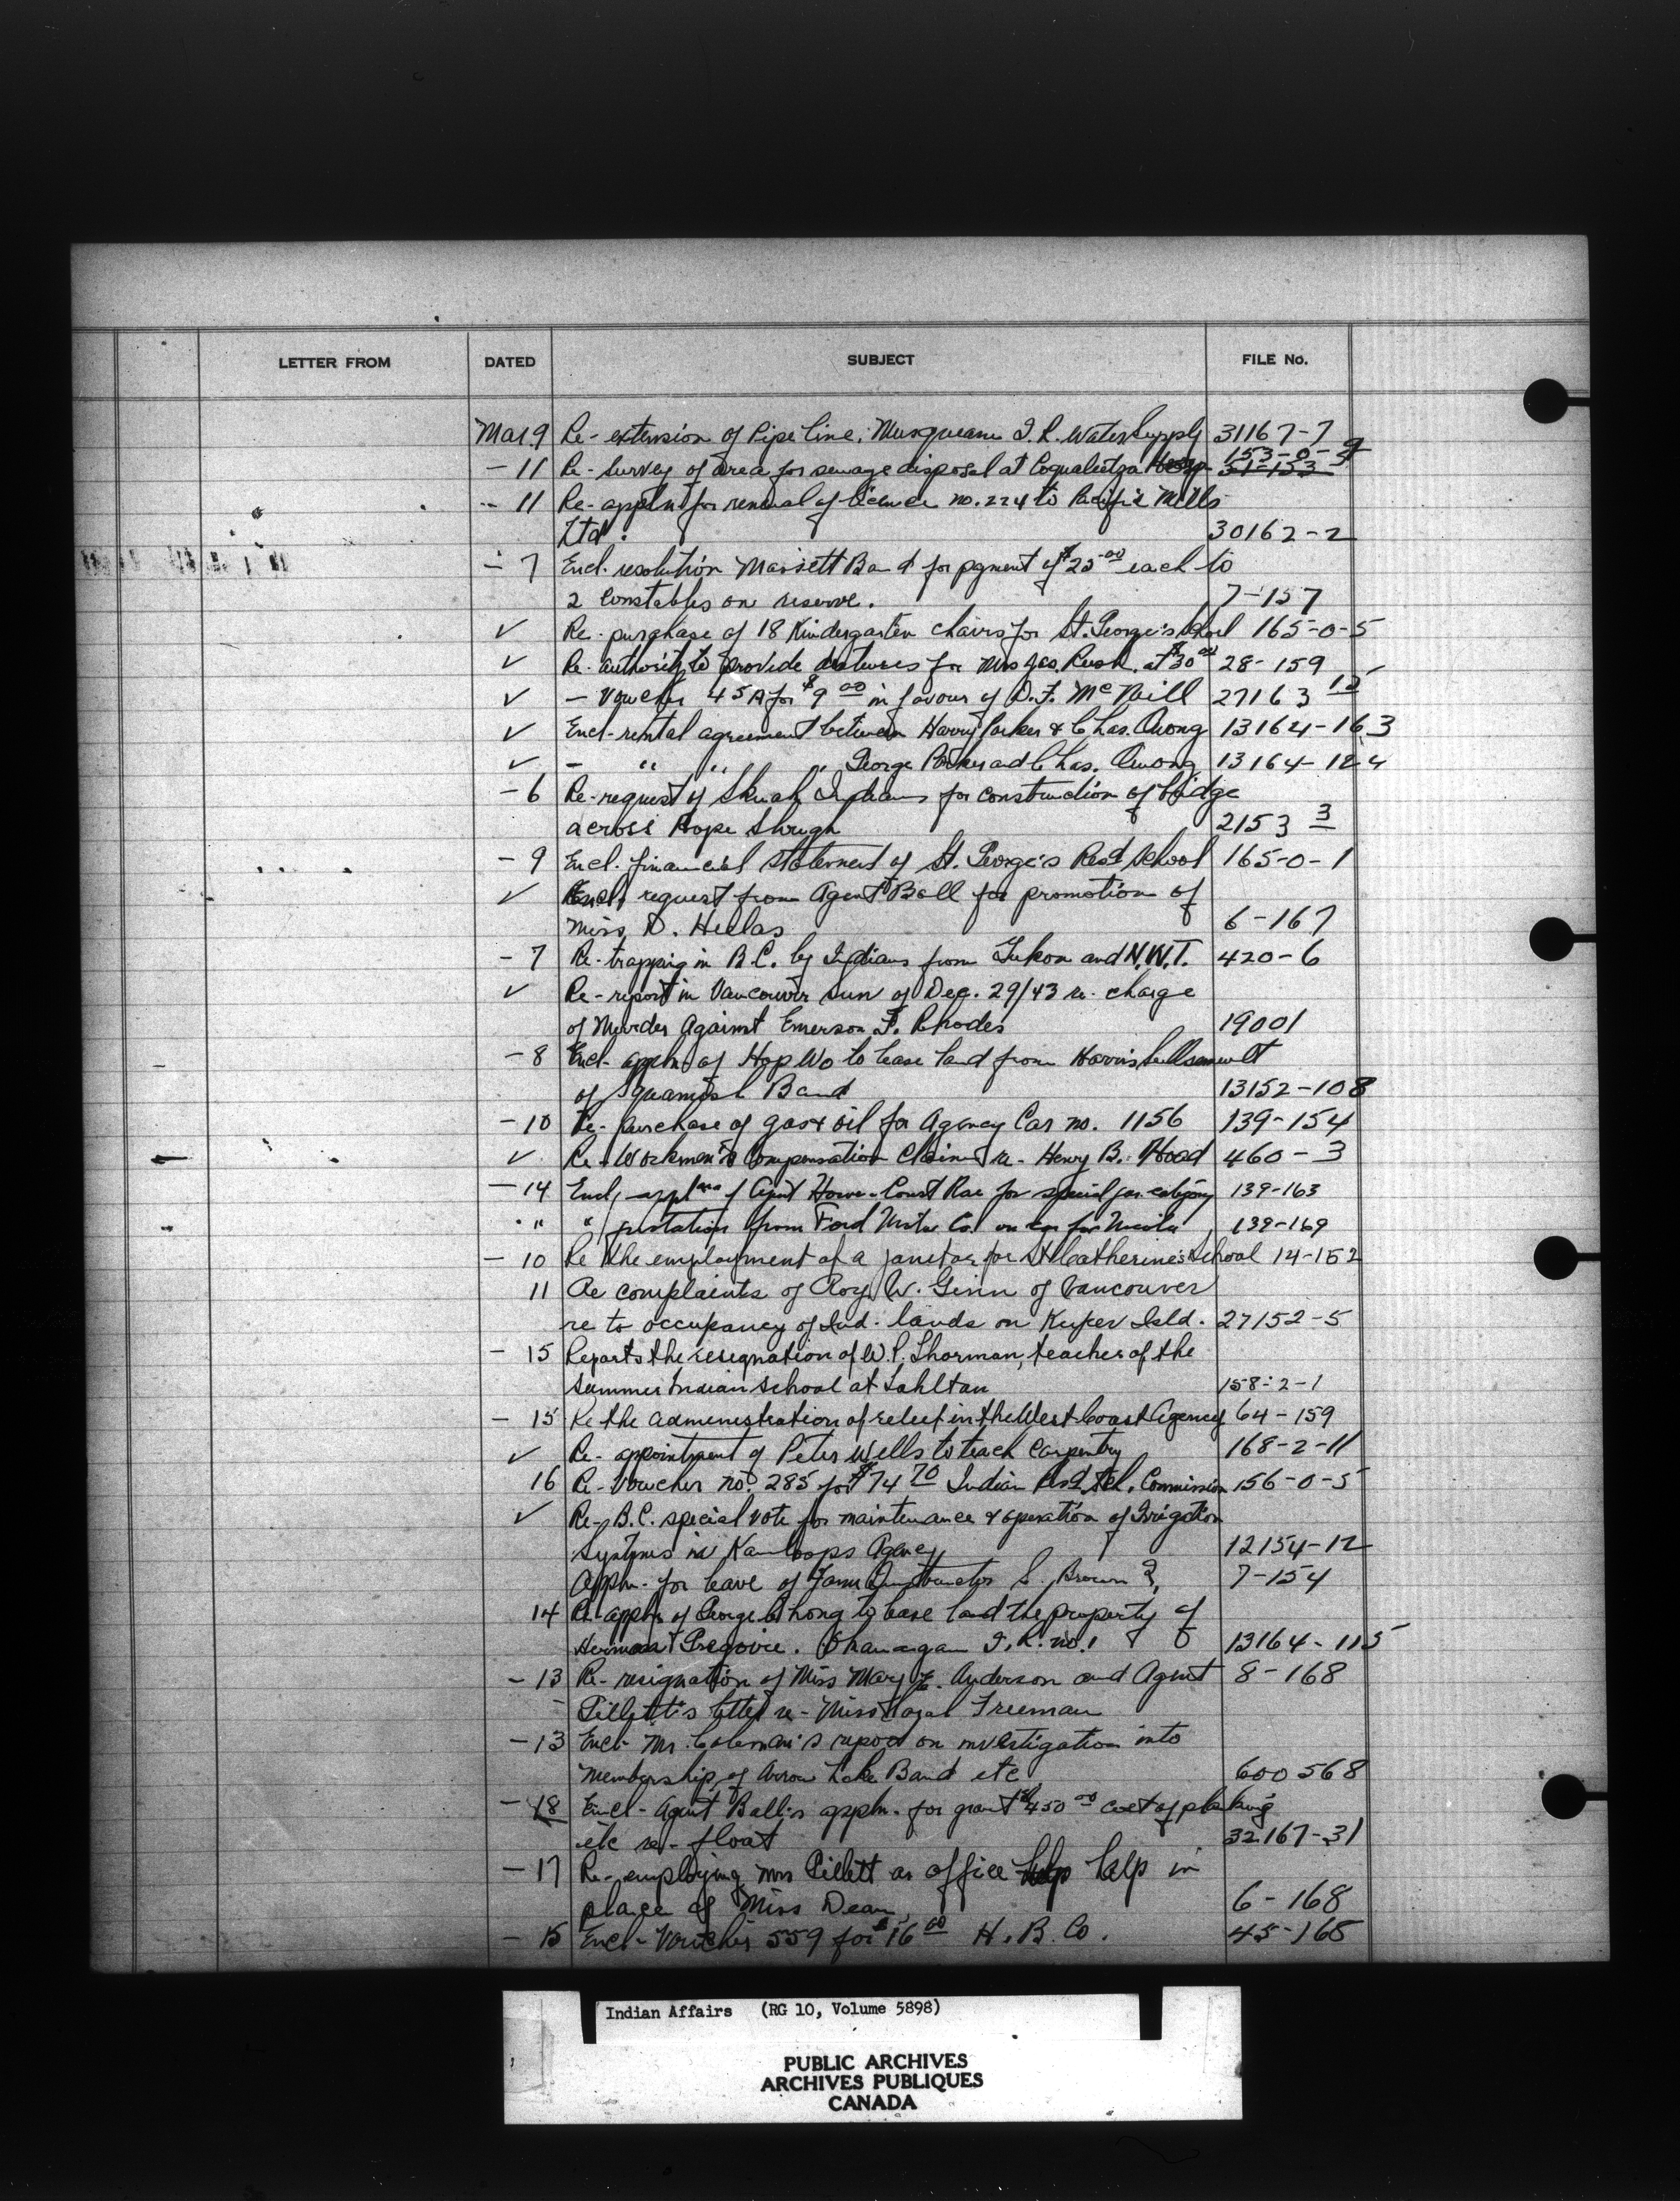 LETTER FROM DATED SUBJECT FILE No.
Mar. 9 Re- extension of Pipe line, Musqueam I.R. Water Supply 31167-7
- 11 Re- Survey of area for sewage disposal at Coqualeetza Hosp. 153-0-9 51-153
- 11 Re- appln for renewal of licence no. 224 to Pacific Mills
Ltd. 30162-2
- 7 Encl. resolution Massett Band for pgment of $25.00 each to
2 Constables on reserve. 7-157
✓ Re- purchase of 18 Kindergarten chairs for St. George's School 165-0-5
✓ Re- authority to provide dentures for Mrs Jas. Rush at $30.00 28-159
✓ - Voucher 45A for $9.00 in favour of D.F. McNeill 27163 12
✓ Encl- rental agreement between Harry Parker & Chas. Quong 13164-163
✓ - " " " George Parker and Chas. Quong 13164-124
- 6 Re- request of Skwah Indians for construction of bridge
across Hope Slough 2153 3
- 9 Encl. financial statement of St. George's Resd School 165-0-1
✓ Encl. request from Agent Ball for promotion of
Miss D. Hellas 6-167
- 7 Re- trapping in B.C. by Indians from Yukon and N.W.T. 420-6
✓ Re- report in Vancouver Sun of Dec. 29/43 re- charge
of Murder Against Emerson F. Rhodes 19001
- 8 Encl- appln. of Hop Wo to lease land from Harris
of Squamish Band 13152-108
- 10 Re- purchase of gas & oil for Agency Car no. 1156 139-154
✓ Re- Workmen's Compensation Claim re- Henry B. Hood 460-3
- 14 Encl, applns of Agent Howe- Const Rae for special gas category 139-163
" " quotation from Ford Motor Co. on car for Nicola 139-169
- 10 Re the employment of a janitor for St Catherine's School 14-152
11 Re complaints of Roy W. Ginn of Vancouver
re to occupancy of Ind. lands on Kuper Isld. 27152-5
- 15 Reports the resignation of W.P. Thorman, teacher of the
Summer Indian School at Tahltan 158-2-1
- 15 Re the administration of relief in the West Coast Agency 64-159
✓ Re- appointment of Peter Wells to teach Carpentry 168-2-11
16 Re- Voucher no. 285 for $74.70 Indian Resd. Sch. Commission 156-0-5
✓ Re- B.C. special vote for maintenance & operation of Irrigation
Systems in Kamloops Agency 12154-12
Appln. for leave of Farm Instructor S. Brown 7-154
14 Re- appln of George Chong to lease land the property of
Herman Gregoire. Okanagan I.R. no. 1 13164-115
- 13 Re- resignation of Miss Mary E. Anderson and Agent 8-168
Gillett's letter re- Miss Hazel Freeman
- 13 Encl- Mr. Coleman's report on investigation into
Membership of Arrow Lake Band etc 600568
- 18 Encl- Agent Ball's appln. for grant $450.00 cost of planking
etc re- float 32167-31
- 17 Re- employing Mrs Gillett as office help in
place of Miss Dean, 6-168
- 15 Encl- Voucher 559 for $16.00 H.B. Co. 45-165
Indian Affairs (RG 10, Volume 5898)
PUBLIC ARCHIVES
ARCHIVES PUBLIQUES
CANADA